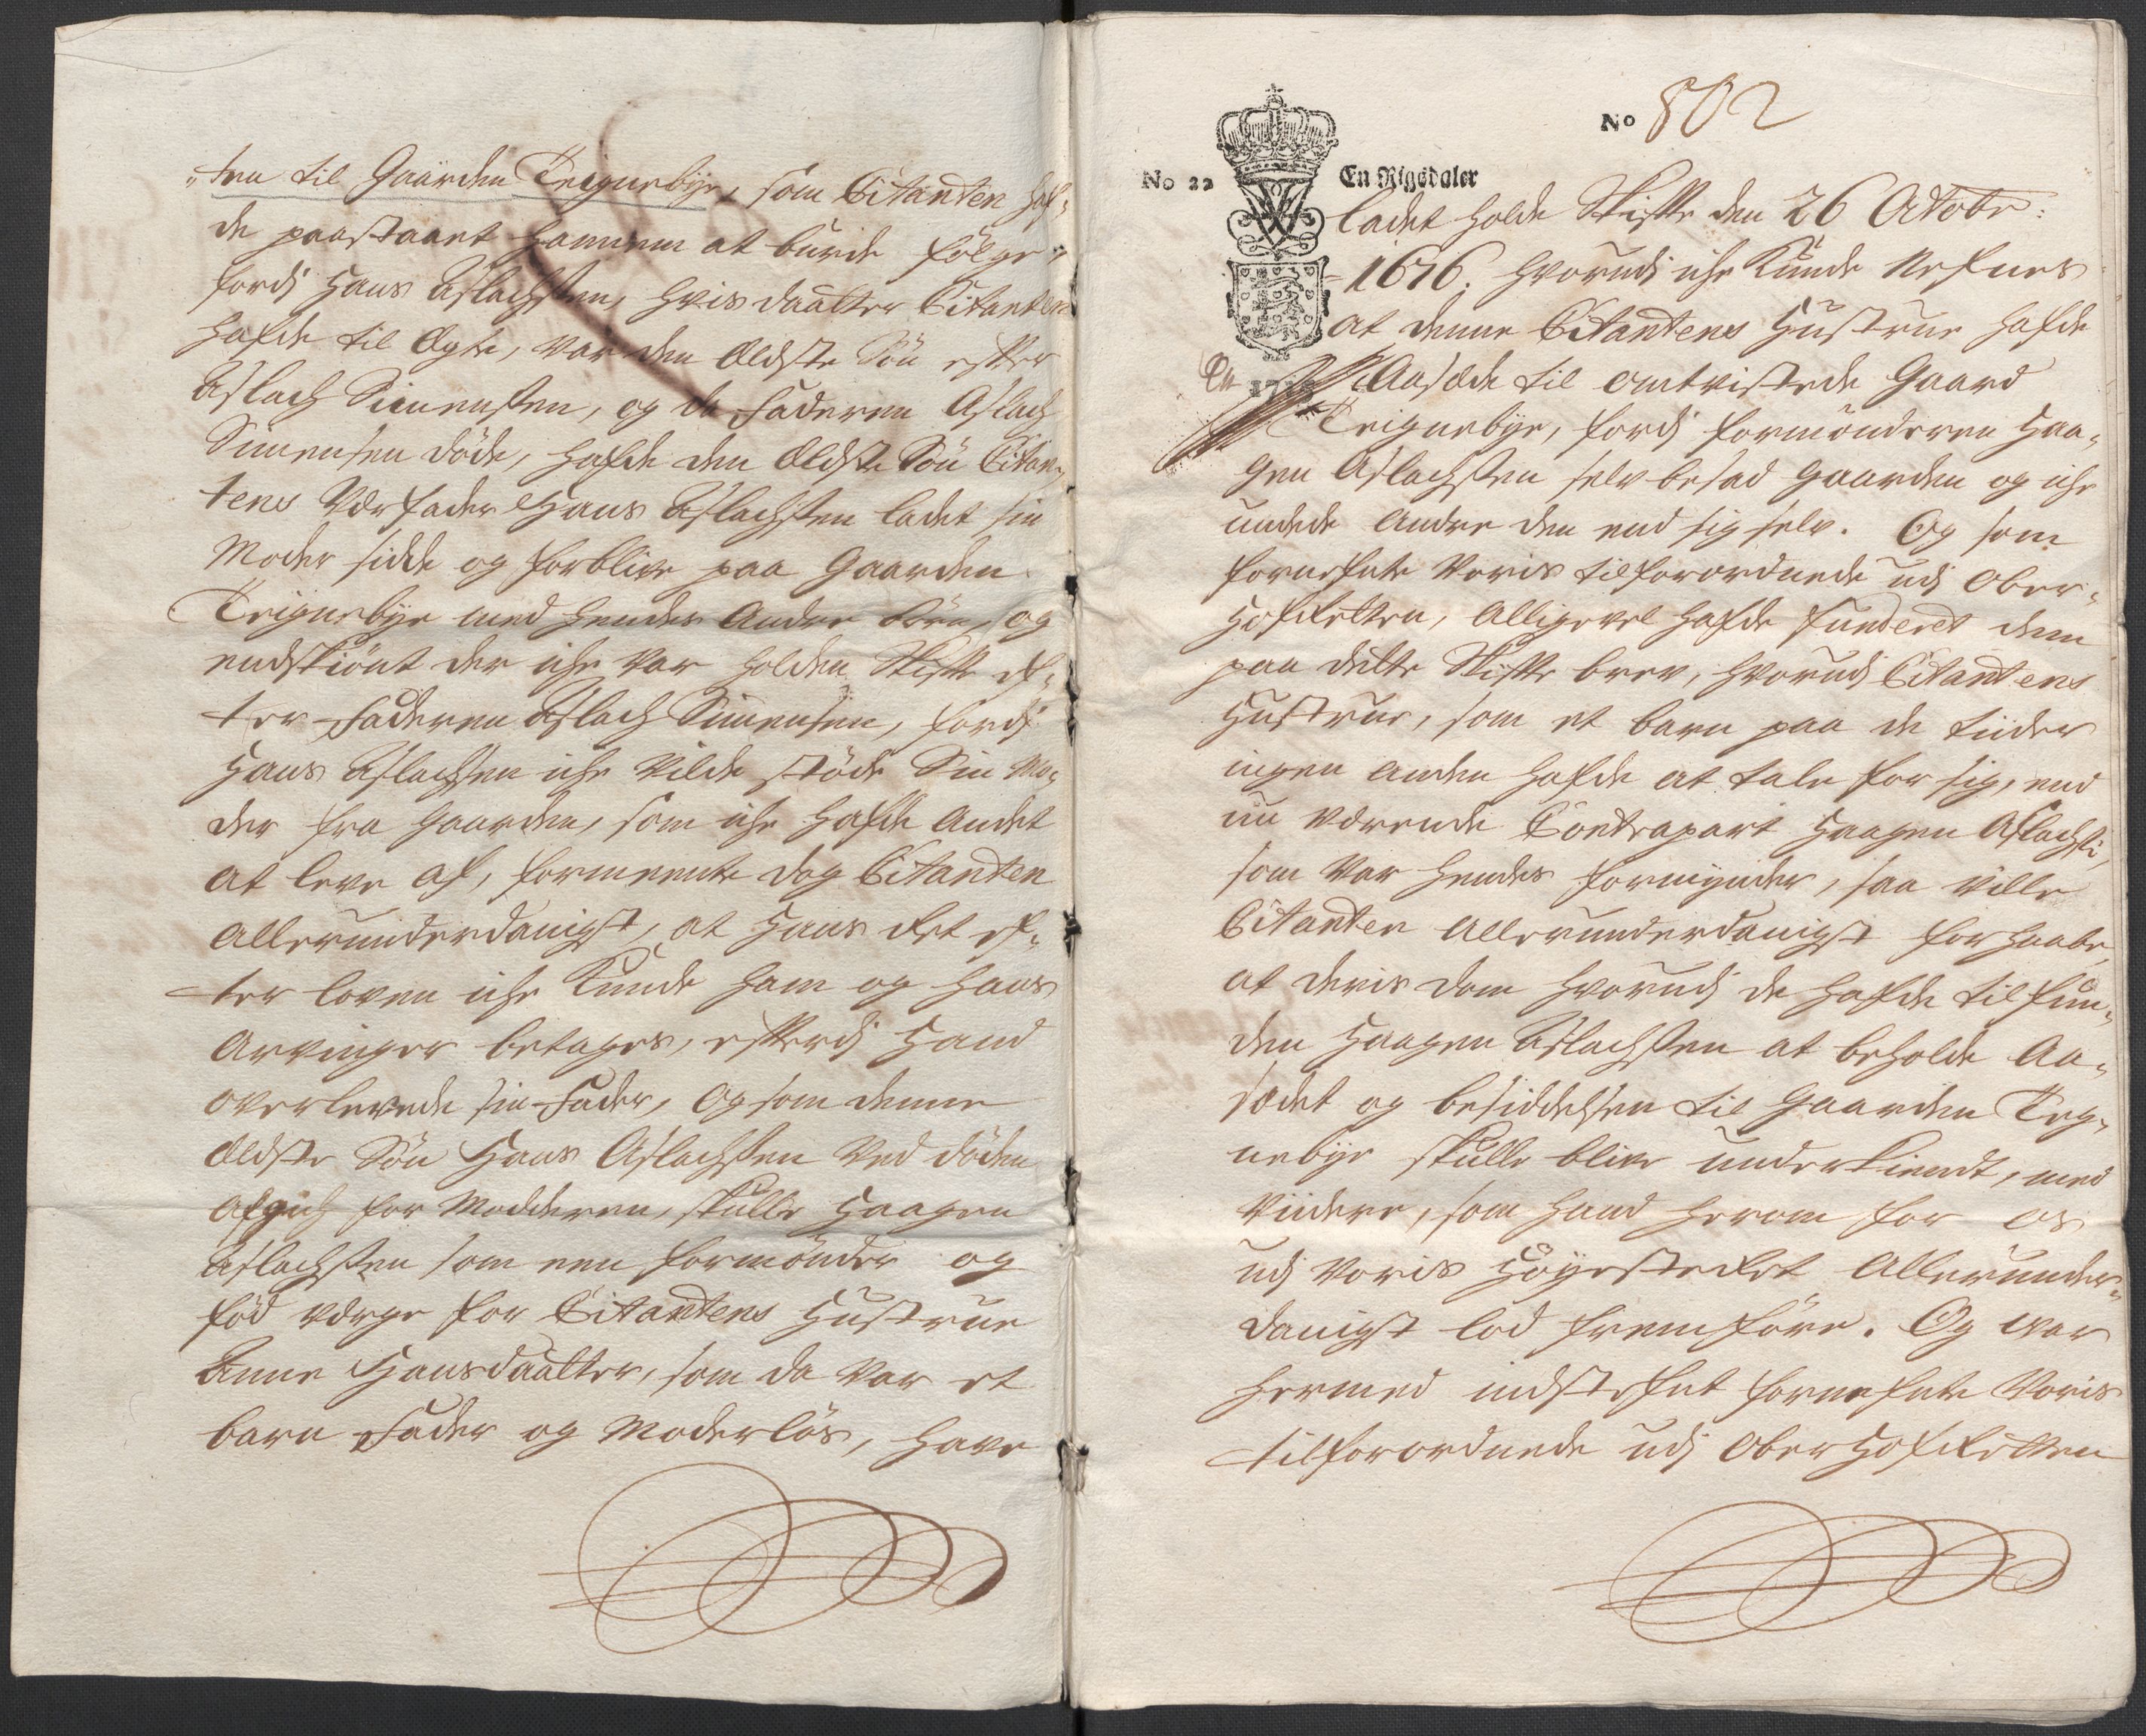 „ten til Gaarden Teignebÿe, som Citanten haf„
de paastaaet hannem at burde følge
fordj Hans Aslachsen, hvis daatter Citanten
hafde til Ægte, var den Ældste Søn efter
Aslach Simensen, og da Faderen Aslach
Simensen døde, hafde den Ældste Søn Citan„
tens Værfader Hans Aslachsen ladet sin
Moder sidde og forblive paa Gaarden
Teignebÿe med hendes Andre Børn, og
endskiønt der iche var holden Skifte ef„
ter Faderen Aslach Simensen, fordj
Hans Aslachsen iche vilde støde Sin Mo„
der fra Gaarden, som iche hafde Andet
at leve af, formeente dog Citanten
Allerunderdanigst, at Hans Ret ef„
ter loven iche Kunde ham og hans
Arvinger betages, efterdj Hand
overlevede sin Fader, og som denne
Ældste Søn Hans Aslachsen Ved døden
afgich for Modderen, skulle Haagen
Aslachsen som een formønder og
fød værge for Citantens Hustrue
Anne Hansdaatter, som da var et
barn Fader og Moderløs, have
No 802
No 22 En Rigsdaler
ladet holde Skifte den 26 Octobr:
1676. hvorudj iche Kunde Nefnes
at denne Citantens Hustrue hafde
Aasæde til omtvistede Gaard
Teignebÿe, fordj formønderen Haa„
gen Aslachsen selv besad Gaarden og iche
undede Andre den end sig selv. Og som
fornefnte Voris tilforordnede udj Ober„
Hof Retten, Alligevel hafde funderet dem
paa dette Skifte brev, hvorudj Citantens
Hustrue, som et barn paa de tiider
ingen anden hafde at tale for sig, end
nu værende Contrapart Haagen Aslachss:
som var hendes formynder, saa ville
Citanten Allerunderdanigst forhaabe,
at deris dom hvorudj de hafde tilfun„
den Haagen Aslachsen at beholde Aa„
sædet og besiddelsen til Gaarden Teg„
nebÿe skulle blive underkiendt, med
Viidere, som Hand herom for os
udj Voris Høÿeste Ret Allerunder„
danigst lod fremføre. Og var
hermed indstefnt fornefnte Voris
tilforordnede udj Ober Hof Retten